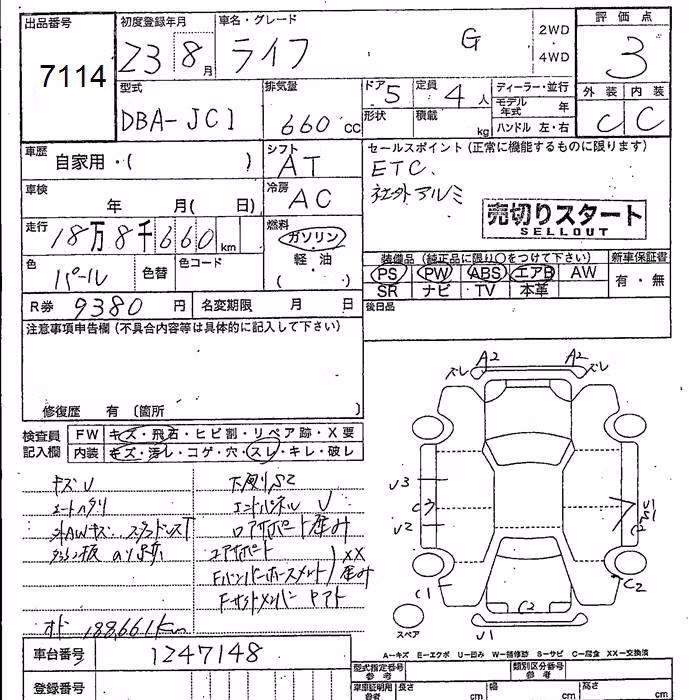 出品番号
7114
初度登録年月
23 8月
車名・グレード
ライフ G
2WD
・
4WD
評価点
3
型式
DBA-JC1
排気量
660 cc
ドア 5
定員 4人
形状
積載 kg
ディーラー・並行
モデル年式 年
ハンドル 左・右
外装 内装
C C
車歴
自家用・( )
シフト
AT
セールスポイント(正常に機能するものに限ります)
ETC
社外アルミ
車検
年 月( 日)
冷房
AC
売切りスタート
SELLOUT
走行
18万8千660km
燃料
ガソリン
・
軽・油
( )
色
パール
色替
色コード
装備品(純正品に限り○をつけて下さい)
PS PW ABS エアB AW
SR ナビ TV 本革
新車保証書
有・無
R券 9380円
名変期限 月 日
後日品
注意事項申告欄(不具合内容等は具体的に記入して下さい)
修復歴 有 〔箇所 〕
検査員記入欄
FW キズ・飛石・ヒビ割・リペア跡・X要
内装 キズ・汚レ・コゲ・穴・スレ・キレ・破レ
キズU
下廻りS2
エンドパネル U
ロアサポート 歪み
コアサポート
XX
歪み
オド 188,661Km
ズレ A2 A2 ズレ
U3
C3
U2
C1
U1
S1
C2
C2
C2
U1
スペア
A−キズ E−エクボ U−凹み W−補修跡 S−サビ C−腐食 XX−交換済
車台番号 1247148
型式指定番号
参考
類別区分番号
参考
登録番号
車庫証明用
参考
長さ cm
幅 cm
高さ cm